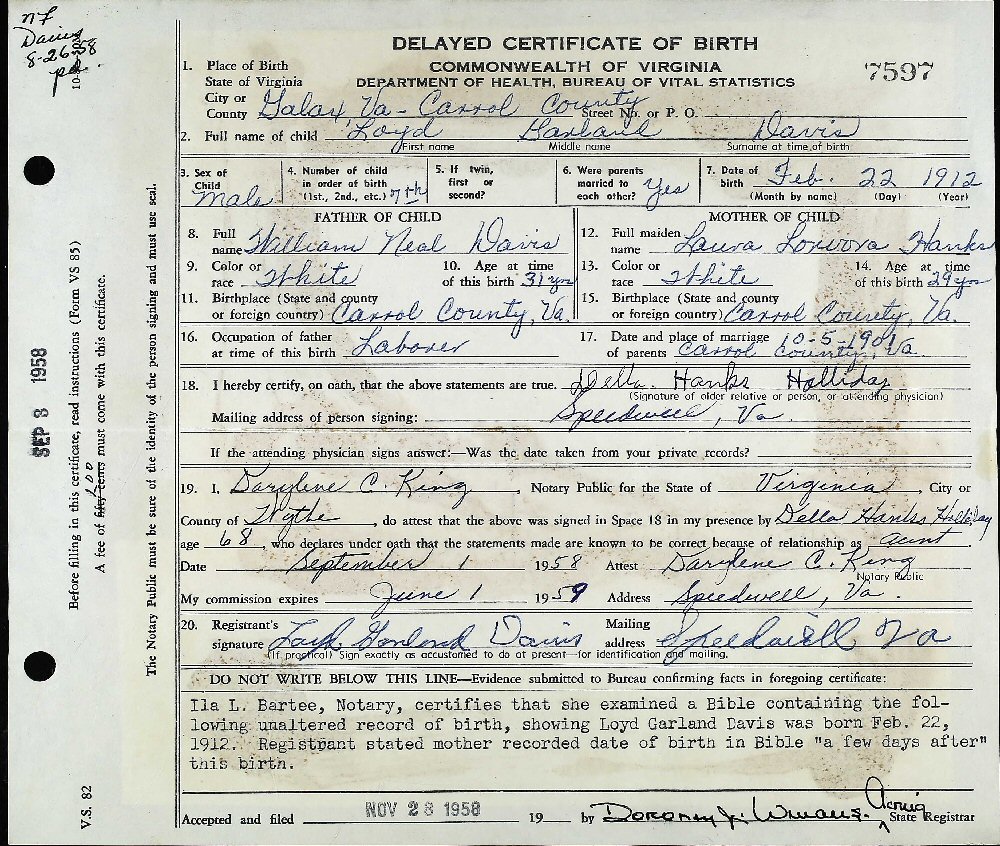 nf
Davis
8-26-58
pd.
DELAYED CERTIFICATE OF BIRTH
COMMONWEALTH OF VIRGINIA
DEPARTMENT OF HEALTH, BUREAU OF VITAL STATISTICS
7597
1. Place of Birth
State of Virginia
City or County Galax, Va - Carrol County Street No. or P. O.
2. Full name of child Loyd Garland Davis
First name Middle name Surname at time of birth
3. Sex of Child Male
4. Number of child in order of birth (1st, 2nd., etc.) 7th
5. If twin, first or second?
6. Were parents married to each other? Yes
7. Date of birth Feb. 22 1912
(Month by name) (Day) (Year)
FATHER OF CHILD
MOTHER OF CHILD
8. Full name William Neal Davis
12. Full maiden name Laura Hanks
9. Color or race White
10. Age at time of this birth 31 yrs
13. Color or race White
14. Age at time of this birth 29 yrs
11. Birthplace (State and county or foreign country) Carrol County, Va.
15. Birthplace (State and county or foreign country) Carrol County, Va.
16. Occupation of father at time of this birth Laborer
17. Date and place of marriage of parents 10-5-1901 Carrol County, Va
18. I hereby certify, on oath, that the above statements are true. Della Hanks Holliday
(Signature of older relative or person, or attending physician)
Mailing address of person signing: Speedwell, Va.
If the attending physician signs answer:—Was the date taken from your private records?
19. I, Darylene C. King, Notary Public for the State of Virginia, City or
County of Wythe, do attest that the above was signed in Space 18 in my presence by Della Hanks Holliday
age 68, who declares under oath that the statements made are known to be correct because of relationship as aunt
Date September 1 1958 Attest Darylene C. King
Notary Public
My commission expires June 1 1959 Address Speedwell, Va.
20. Registrant's signature Loyd Garland Davis Mailing address Speedwell, Va
(If practical) Sign exactly as accustomed to do at present—for identification and mailing.
DO NOT WRITE BELOW THIS LINE—Evidence submitted to Bureau confirming facts in foregoing certificate:
Ila L. Bartee, Notary, certifies that she examined a Bible containing the fol-
lowing unaltered record of birth, showing Loyd Garland Davis was born Feb. 22,
1912. Registrant stated mother recorded date of birth in Bible "a few days after"
this birth.
Accepted and filed NOV 28 1958 19 by Dorothy J. Acting State Registrar
SEP 3 1958
Before filling in this certificate, read instructions (Form VS 85)
A fee of fifty cents 1.00 must come with this certificate.
The Notary Public must be sure of the identity of the person signing and must use seal.
V.S. 82